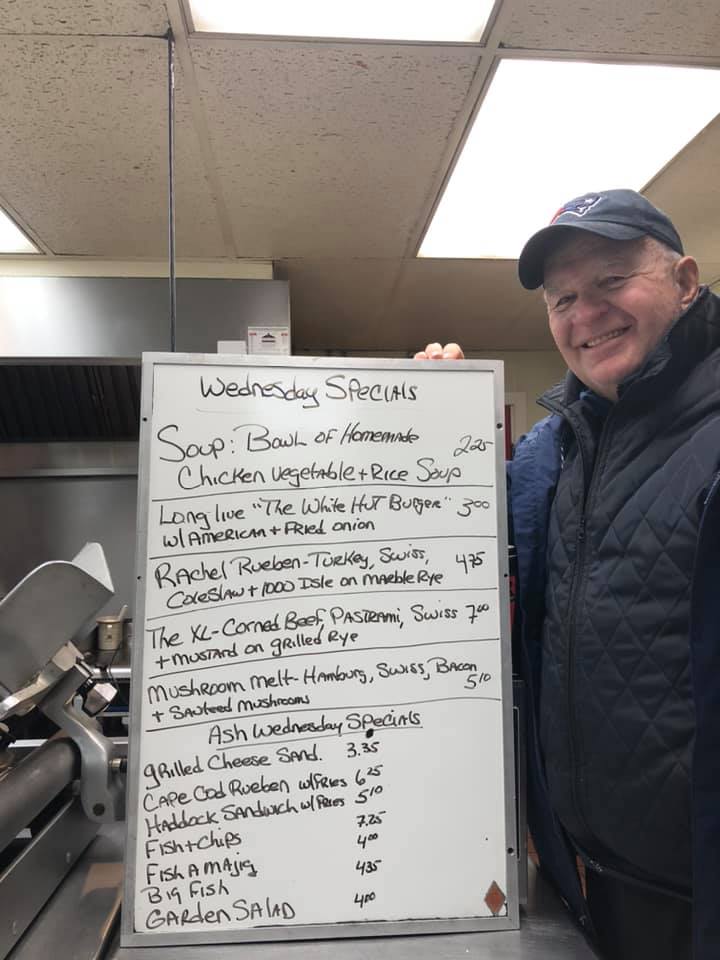 Wednesday Specials
Soup: Bowl of Homemade 2.25
Chicken Vegetable + Rice Soup
Long live "The White Hut Burger" 3.00
w/ American + Fried onion
Rachel Rueben - Turkey, Swiss, 4.75
Coleslaw + 1000 Isle on Marble Rye
The XL - Corned Beef, Pastrami, Swiss 7.00
+ mustard on grilled Rye
Mushroom Melt - Hamburg, Swiss, Bacon
+ Sauteed mushrooms 5.10
Ash Wednesday Specials
grilled Cheese Sand. 3.35
Cape Cod Rueben w/ Fries 6.25
Haddock Sandwich w/ Fries 5.10
Fish + Chips 7.25
Fish A Majig 4.00
Big Fish 4.35
Garden Salad 4.00